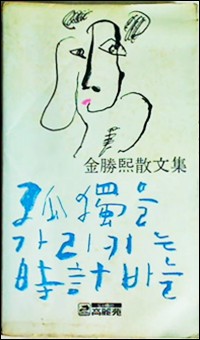 金勝熙散文集
孤獨을
가리키는
時計바늘
高麗苑